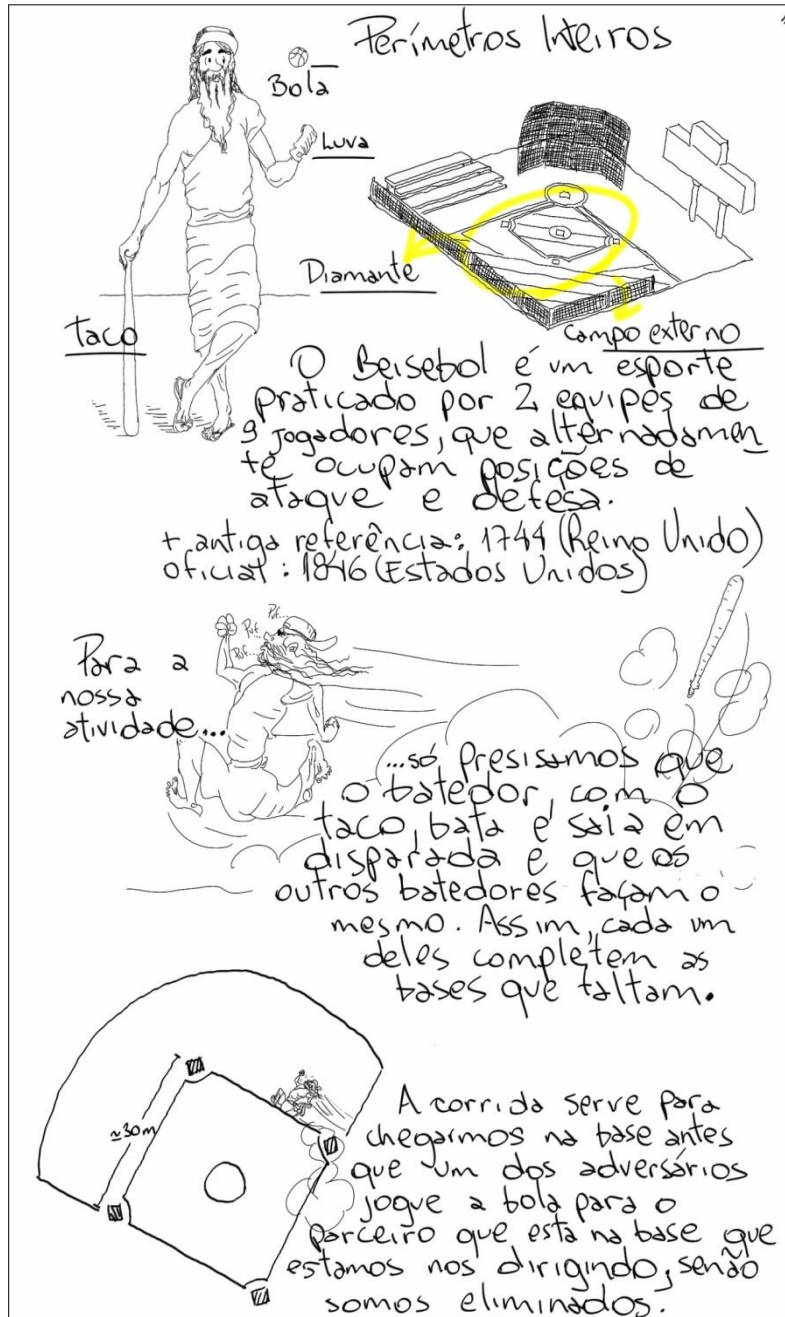 Perímetros Inteiros
Bola
Luva
Diamante
Taco
campo externo
O Beisebol é um esporte
praticado por 2 equipes de
9 jogadores, que alternadamen
te ocupam posições de
ataque e defesa.
+ antiga referência: 1744 (Reino Unido)
oficial: 1846 (Estados Unidos)
Puf...
Puf...
Puf...
Para a
nossa
atividade...
...só presisamos que
o batedor, com o
taco, bata e saia em
disparada e que os
outros batedores façam o
mesmo. Assim, cada um
deles completem as
bases que faltam.
≃30m
A corrida serve para
chegarmos na base antes
que um dos adversários
jogue a bola para o
parceiro que esta na base que
estamos nos dirigindo, senão
somos eliminados.